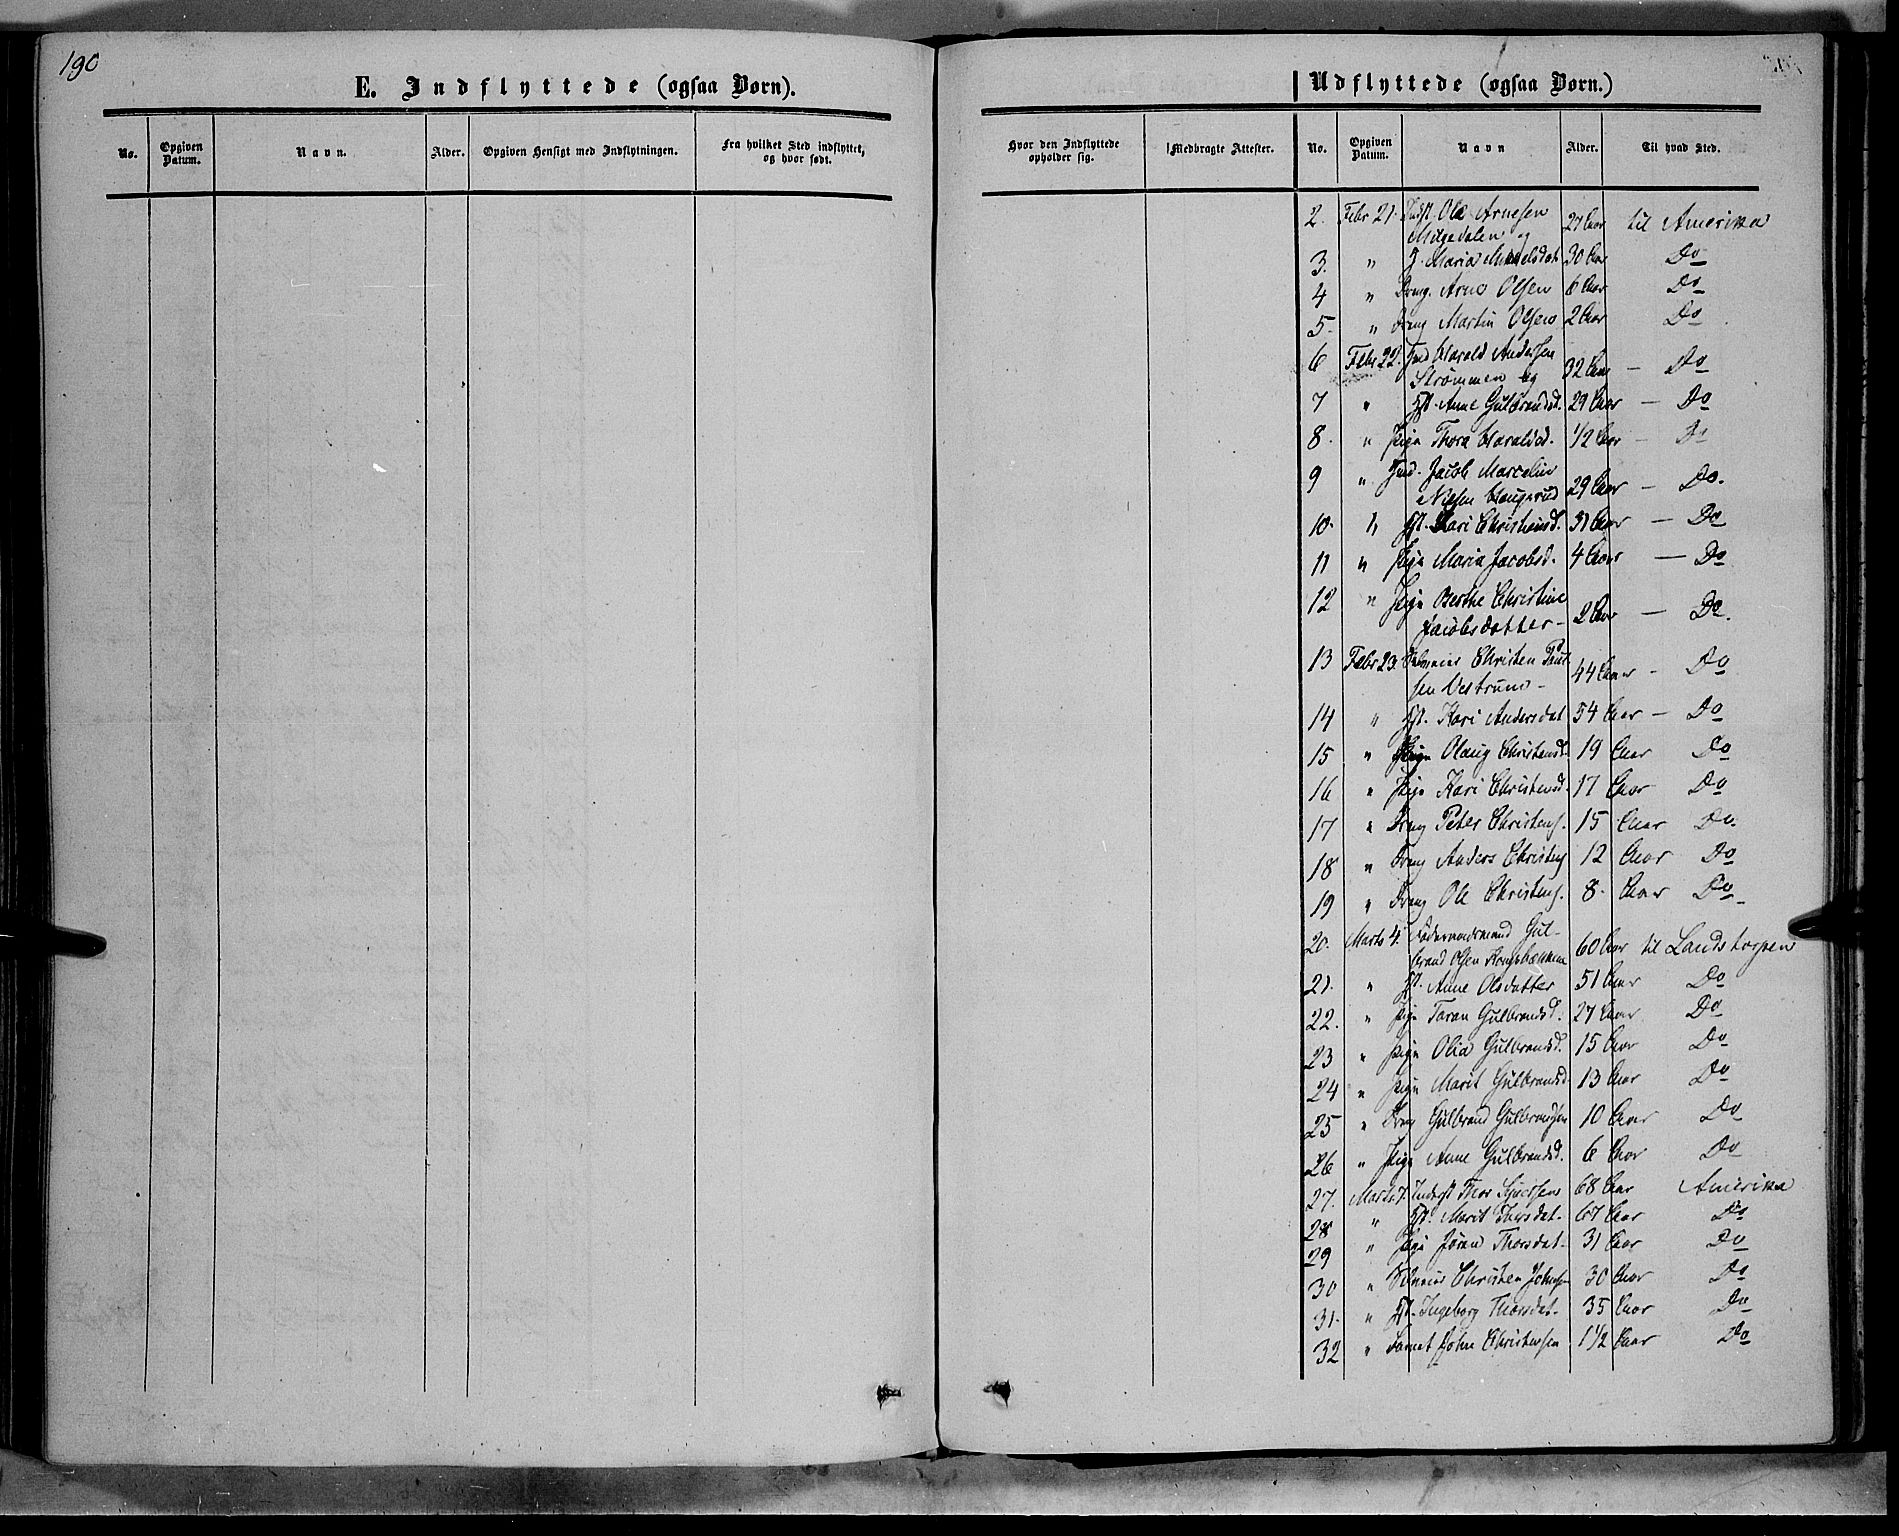 190
E. Indflyttede (ogsaa Børn).
No. Opgiven Datum. Navn. Alder. Opgiven Hensigt med Indflytningen. Fra hvilket Sted indflyttet, og hvor født.
Udflyttede (ogsaa Børn.)
Hvor den Indflyttede opholder sig. Medbragte Attester. No. Opgiven Datum. Navn Alder. Til hvad Sted.
2. Febr 21. Indst. Ole Arnesen 27 Aar til Amerika
og
3. " Maria 30 Aar Do
4 " Dreng. Arne Olsen 6 Aar Do
5. " Dreng Martin Olsen 2 Aar Do
6 Febr 22. Ind Harald Andersen 32 Aar – Do
Strømmen og
7 " Hst. Anne Gulbrandsd. 29 Aar – Do
8. " Pige Thora Haraldsd. 1/2 Aar – Do
9 " Ind. Jacob Marcelius
Nilsen Haugerud 29 Aar – Do.
10. " Hst. Kari Christiansd. 31 Aar – Do
11 " Pige Maria Jacobsd. 4 Aar – Do
12 " Pige Berthe Christine
Jacobsdatter – 2 Aar – Do.
13 Febr 23. Christen Poul-
sen Vestrum – 44 Aar – Do
14 " Hst. Kari Andersdat 54 Aar – Do
15 " Pige Olaug Christensd. 19 Aar Do
16 " Pige Kari Christensd. 17 Aar Do
17 " Dreng Peter Christens. 15 Aar Do.
18 " Dreng Anders Christens 12 Aar Do
19 " Dreng Ole Christens. 8. Aar Do
20. Marts 4. Føderaadsmand Gul-
brand Olsen 60 Aar til Landstorpen
21. " Hst. Anne Olsdatter 51 Aar Do
22. " Pige Taran Gulbrandsd. 27 Aar Do
23 " Pige Olia Gulbrandsd. 15 Aar Do
24 " Pige Marit Gulbrandsd 13 Aar Do
25 " Dreng Gulbrand Gulbrandsen 10 Aar Do
26 " Pige Anne Gulbrandsd. 6 Aar Do
27. Marts 7. Inderst Thor Syversen 68 Aar Amerika
28 " Hst. Marit Thorsdat. 67 Aar Do
29 " Pige Jøran Thorsdat. 31 Aar Do
30 " Christen Johnsen 30 Aar Do
31. " Hst. Ingeborg Thorsdat. 35 Aar Do
32 " Barnet John Christensen 1 1/2 Aar Do